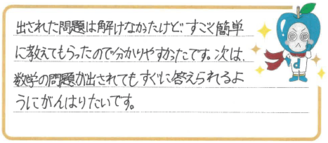 出された問題は解けなかったけど、すごく簡単
に教えてもらったので分かりやすかたです。次は、
数学の問題が出されてもすぐに答えられるよ
うにがんばりたいです。
d